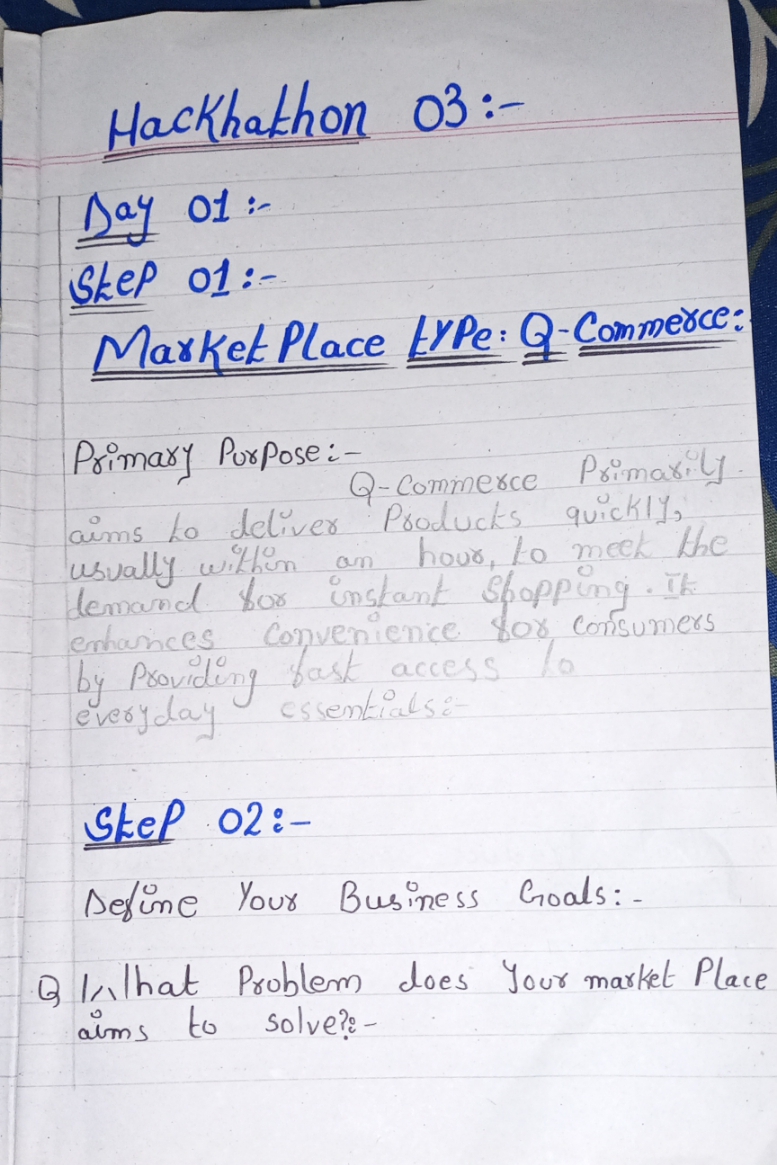 Hackhathon 03:-
Day 01:-
Step 01:-
Market Place type: Q-Commerce:
Primary Purpose:-
Q-Commerce Primarily
aims to deliver Products quickly,
usually within an hour, to meet the
demand for instant Shopping. It
enhances convenience for consumers
by Providing fast access to
everyday essentials:-
Step 02:-
Define Your Business Goals:-
Q What Problem does Your market Place
aims to solve?:-